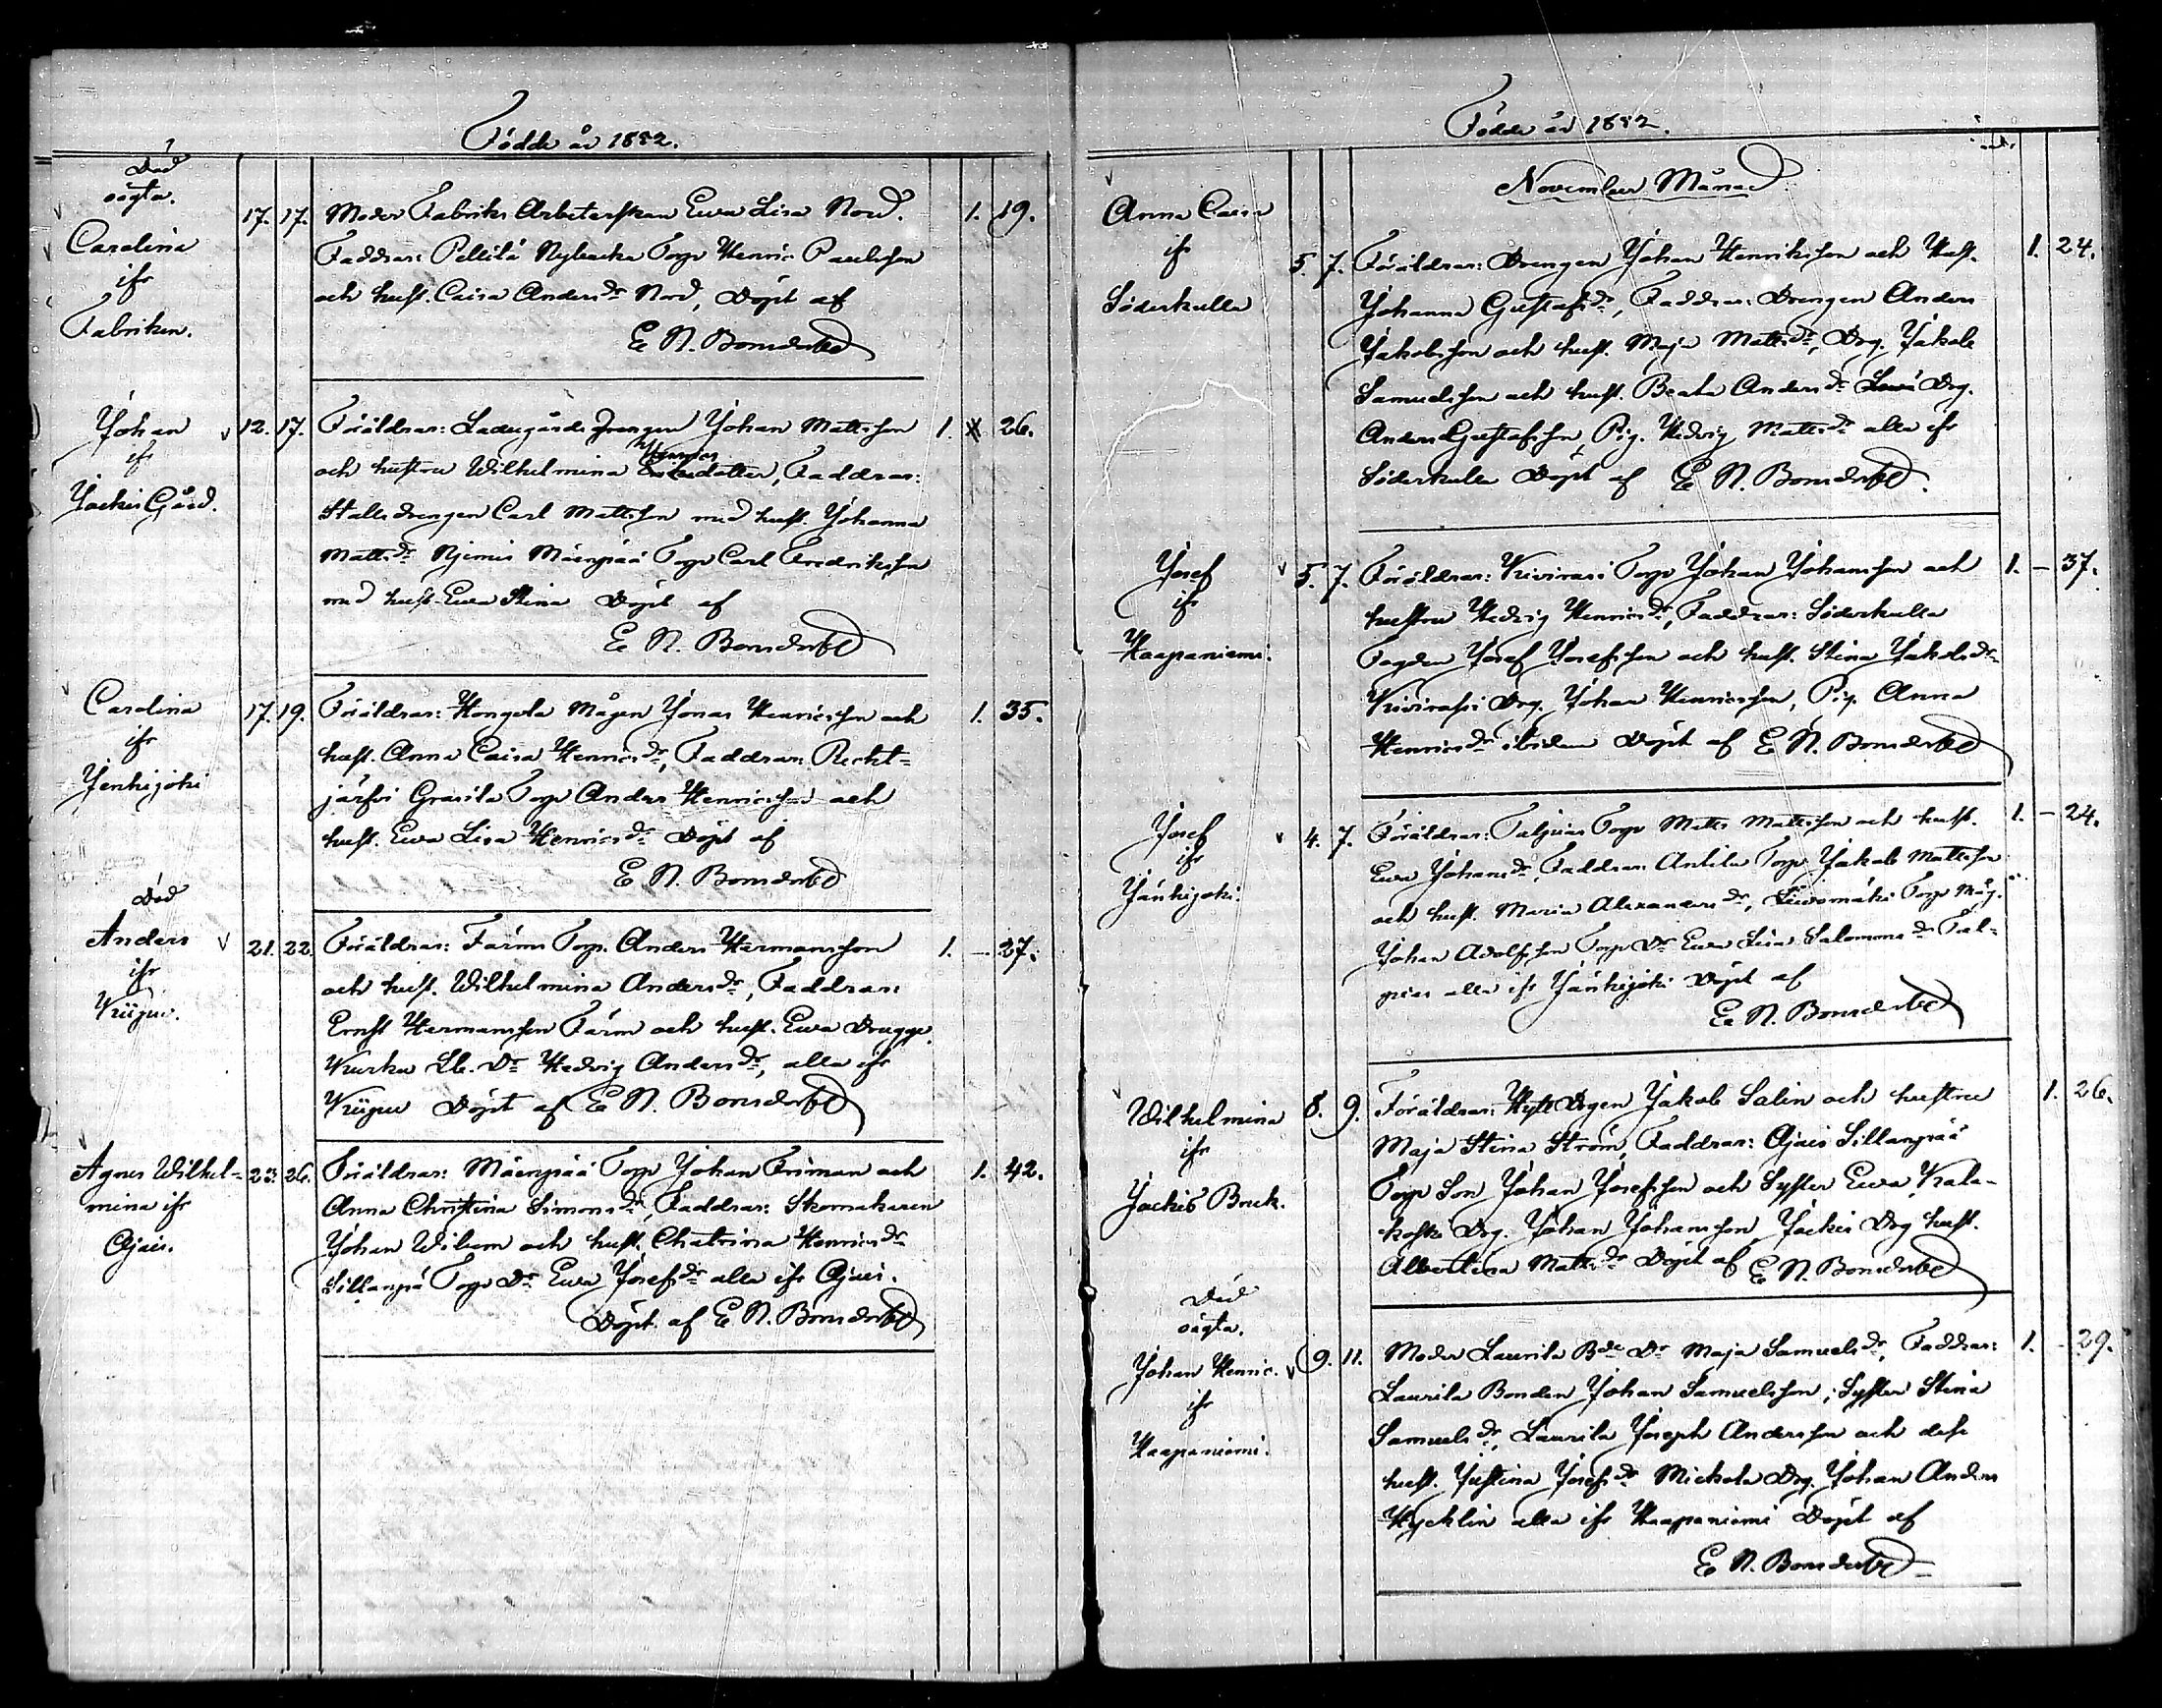 Födde år 1852.
Död
oägta.
Carolina
ifr
Fabriken.
17. 17. Moder Fabriks Arbeterskan Ewa Lisa Nord. 1. 19.
Faddrar: Pellilä Nybacka Torp. Henric Paulsson
och hust. Caisa Andersdr Nord, Döpt af
E N. Bonsdorff
Johan
ifr
Jockis Gård.
12. 17. Föräldrar: Ladugårds Drengen Johan Mattsson 1. 26.
och hustru Wilhelmina Henricsdotter, Faddrar:
Stallsdrengen Carl Mattsson med hust. Johanna
Mattsdr Njemis Mäenpää Torp Carl Fredriksson
med hust. Ewa Stina Döpt af
E N. Bonsdorff
Carolina
ifr
Jenhijoki
17. 19. Föräldrar: Hongola Mågen Jonas Henricsson och 1. 35.
hust. Anna Caisa Henricsdr, Faddrar: Recht=
järfvi Grasila Torp Anders Henricsson och
hust. Ewa Lisa Henricsdr Döpt af
E N. Bonsdorff
Död
Anders
ifr
Kuijpu.
21. 22. Föräldrar: Färm Torp. Anders Hermansson 1. - 27.
och hust. Wilhelmina Andersdr, Faddrar:
Ernst Hermansson Färm och hust. Ewa Drugge.
Kurku Dr Hedvig Andersdr, alla ifr
Döpt af E N. Bonsdorff
Agnes Wilhel=
mina ifr
Ojais.
23. 26. Föräldrar: Mäenpää Torp Johan Friman och 1. 42.
Anna Christina Simonsdr, Faddrar: Skomakaren
Johan Wilem och hust. Chatrina Henricsdr
Sillanpä Torp Dr Ewa Josefsdr alla ifr Ojais.
Döpt af E N. Bonsdorff
Födde år 1852.
November Månad
Anna Caisa
ifr
Söderkulla
5. 7. Föräldrar: Drengen Johan Henriksson och Hust. 1. 24.
Johanna Gustafsdr, Faddrar: Drengen Anders
Jakobsson och hust. Maja Mattsdr, Drg. Jakob
Samuelsson och hust. Beata Andersdr Drg.
Anders Gustafsson, Pig. Hedvig Mattsdr alla ifr
Söderkulla Döpt af E N. Bonsdorff.
Josef
ifr
Haapaniemi.
5. 7. Föräldrar: Kivirasi Torp Johan Johansson och 1. - 37.
hustru Hedvig Henricsdr, Faddrar: Söderkulla
Fogden Josef Josefsson och hust. Stina Jakobsdr
Kivirasi Drg. Johan Henricsson, Pig. Anna
Henricsdr ibidem Döpt af E N. Bonsdorff
Josef
ifr
Jänhijoki.
4. 7. Föräldrar: Talpias Torp Matts Mattsson och hust. 1. - 24.
Ewa Johansdr, Faddrar: Antila Torp Jakob Mattsson
och hust. Maria Alexandersdr, Torp Måg.
Johan Adolfsson, Torp Dr Ewa Lisa Salomonsdr Tal=
pias alla ifr Jänhijoki Döpt af
E N. Bonsdorff
Wilhelmina
ifr
Jockis Bruk.
8. 9. Föräldrar: Hytt Drgen Jakob Salin och hustru 1. 26.
Maja Stina Ström, Faddrar: Ojais Sillanpää
Torp Son Johan Josefsson och Syster Ewa Kala-
koski Drg. Johan Johansson, Jockis Drg hust.
Albertina Mattsdr Döpt af E N. Bonsdorff
Död
oägta.
Johan Henric.
ifr
Haapaniemi.
9. 11. Moder Laurila Bde Dr Maja Samuelsdr, Faddrar: 1. - 29.
Laurila Bonden Johan Samuelsson, Syster Stina
Samuelsdr, Laurila Joseph Andersson och dess
hust. Justina Josefsdr Mickola Drg. Johan Anders
Hycklin alla ifr Haapaniemi Döpt af
E N. Bonsdorff